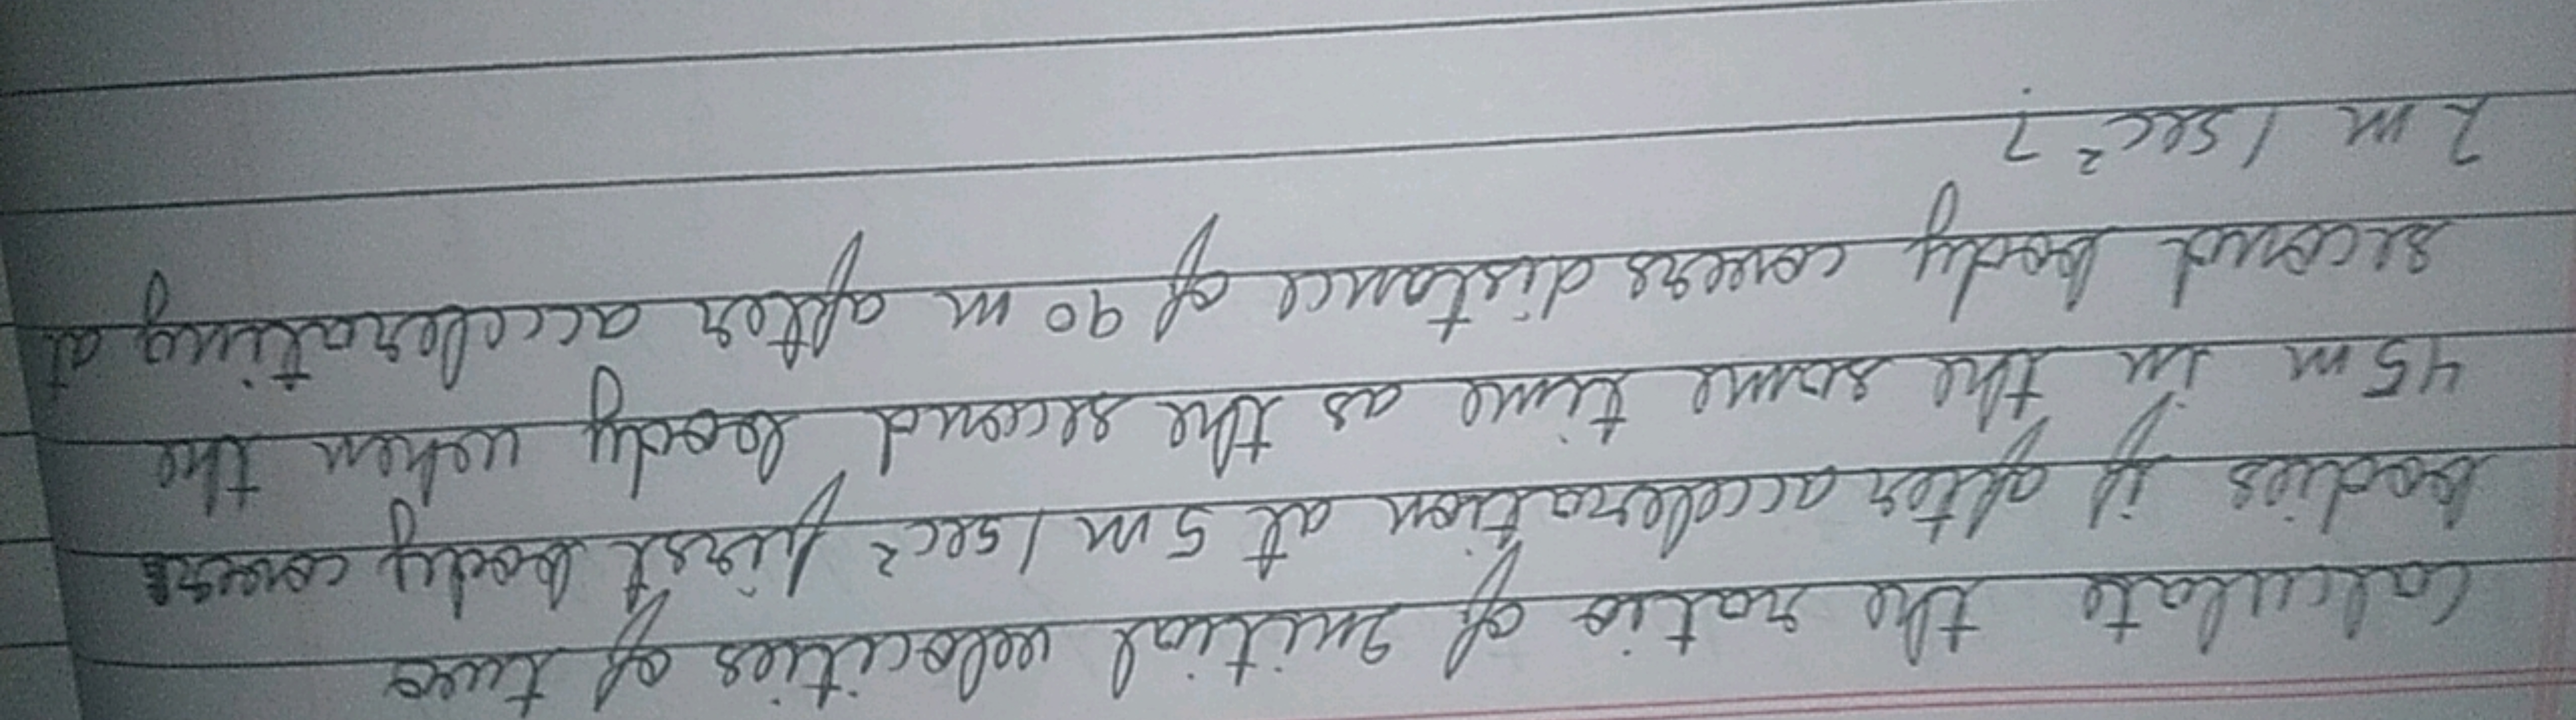 Calculate the ratio of Initial velocities of two
bodies if after acceleration at 5 m / sec² first body covers
45 m in the same time as the second body when the
second body covers distance of 90 m after accelerating at
2 m / sec² ?